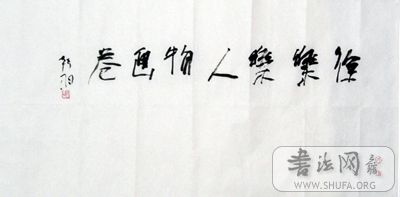 徐樂樂人物畫卷
書法网
WWW.SHUFA.ORG